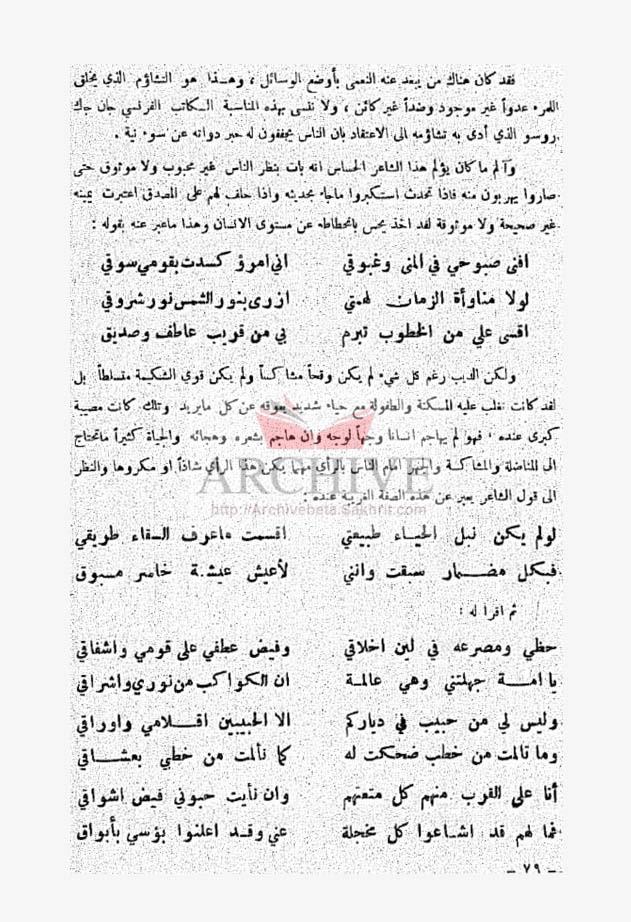 فقد كان هناك من يبعد عنه النعمى بأوضع الوسائل ، وهذا هو التشاؤم الذي يخلق
للمرء عدواً غير موجود وضداً غير كائن ، ولا ننسى بهذه المناسبة الكاتب الفرنسي جان جاك
روسو الذي أدى به تشاؤمه الى الاعتقاد بان الناس يجففون له حبر دواته عن سوء نية .
وآلم ما كان يؤلم هذا الشاعر الحساس انه بات بنظر الناس غير محبوب ولا موثوق حتى
صاروا يهربون منه فاذا تحدث استكبروا ماجاء بحديثه واذا حلف لهم على الصدق اعتبرت يمينه
غير صحيحة ولا موثوقة لقد اخذ يحس بانحطاطه عن مستوى الانسان وهذا ماعبر عنه بقوله :
افنى صبوحي في المنى وغبوقي اني امرؤ كسدت بقومي سوقي
لولا مناوأة الزمان لهمتي ازرى بنور الشمس نور شروقي
اقسى علي من الخطوب تبرم بي من قريب عاطف وصديق
ولكن الديب رغم كل شيء لم يكن وقحاً مشاكساً ولم يكن قوي الشكيمة متسلطاً بل
لقد كانت تغلب عليه المسكنة والطفولة مع حياء شديد يعوقه عن كل مايريد وتلك كانت مصيبة
كبرى عنده ، فهو لم يهاجم انسانا وجهاً لوجه وان هاجم بشعره وهجائه والحياة كثيراً ماتحتاج
الى المناضلة والمشاكسة والجهر امام الناس بالرأي مهما يكن هذا الرأي شاذاً او مكروها والنظر
الى قول الشاعر يعبر عن هذه الصفة الغريبة عنده :
ARCHIVE
http://Archivebeta.Sakhrit.com
لولم يكن نبل الحياء طبيعتي اقسمت ماعرف الشقاء طريقي
فبكل مضمار سبقت وانني لأعيش عيشة خاسر مسبوق
ثم اقرا له :
حظي ومصرعه في لين اخلاقي وفيض عطفي على قومي واشفاقي
يا امة جهلتني وهي عالمة ان الكواكب من نوري واشراقي
وليس لي من حبيب في دياركم الا الحبيبين اقلامي واوراقي
وما تالمت من خطب ضحكت له كما تألمت من خطبي بعشاقي
أنا على القرب منهم كل متعتهم وان نأيت حبوني فيض اشواقي
فما لهم قد اشاعوا كل مخجلة عني وقد اعلنوا بؤسي بأبواق
- ٧٩ -